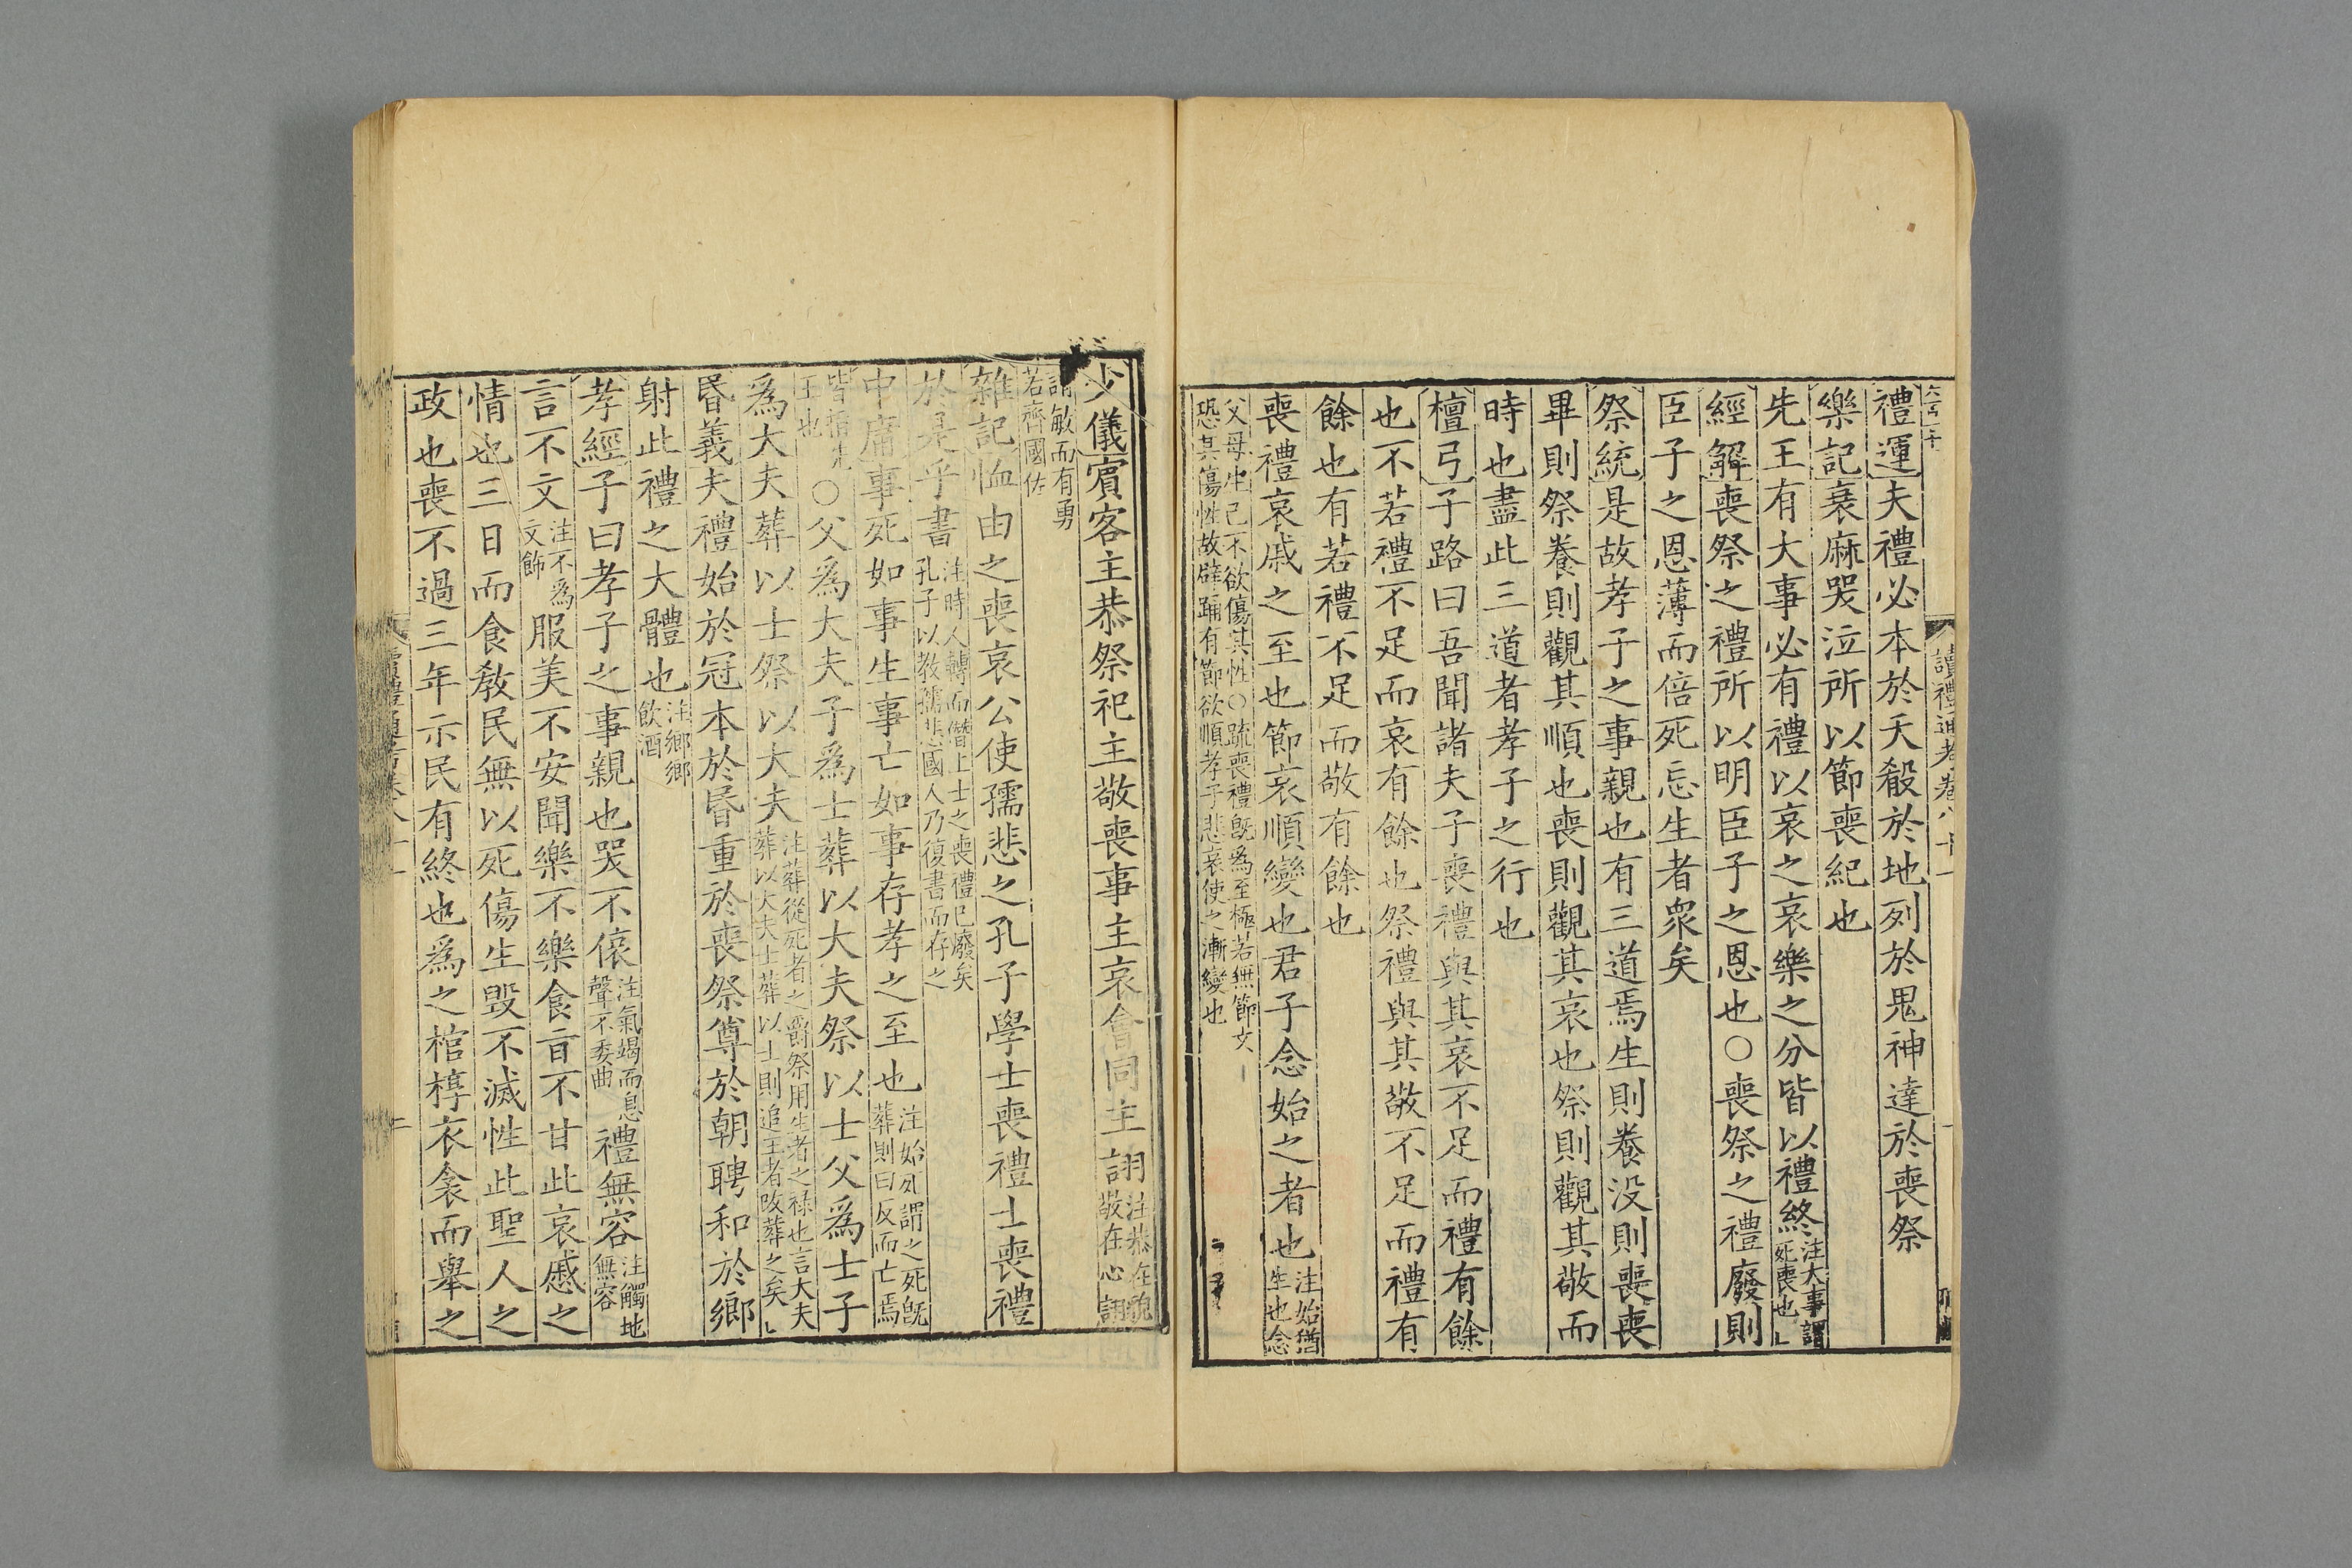 讀禮通考卷八十一
禮運夫禮必本於天殽於地列於鬼神達於喪祭
樂記衰麻哭泣所以節喪紀也
先王有大事必有禮以哀之哀樂之分皆以禮終注大事謂死喪也
經解喪祭之禮所以明臣子之恩也○喪祭之禮廢則
臣子之恩薄而倍死忘生者衆矣
祭統是故孝子之事親也有三道焉生則養没則喪喪
畢則祭養則觀其順也喪則觀其哀也祭則觀其敬而
時也盡此三道者孝子之行也
檀弓子路曰吾聞諸夫子喪禮與其哀不足而禮有餘
也不若禮不足而哀有餘也祭禮與其敬不足而禮有
餘也有若禮不足而敬有餘也
喪禮哀戚之至也節哀順變也君子念始之者也注始猶生也念
父母生己不欲傷其性○疏喪禮旣爲至極若無節文
恐其傷性故辟踊有節欲順孝子悲哀使之漸變也
少儀賓客主恭祭祀主敬喪事主哀會同主詡注恭在貌敬在心詡
謂敏而有勇若齊國佐
雜記恤由之喪哀公使孺悲之孔子學士喪禮士喪禮
於是乎書注時人轉而僭上士之喪禮已廢矣孔子以教孺悲國人乃復書而存之
中庸事死如事生事亡如事存孝之至也注始死謂之死旣葬則曰反而亡焉
皆指先王也○父爲大夫子爲士葬以大夫祭以士父爲士子
爲大夫葬以士祭以大夫注葬從死者之爵祭用生者之祿也言大夫葬以大夫士葬以士則追王者改葬之矣
昏義夫禮始於冠本於昏重於喪祭尊於朝聘和於鄉
射此禮之大體也注鄉鄉飲酒
孝經子曰孝子之事親也哭不偯注氣竭而息聲不委曲禮無容注觸地無容
言不文注不爲文飾服美不安聞樂不樂食旨不甘此哀慼之
情也三日而食敎民無以死傷生毁不滅性此聖人之
政也喪不過三年示民有終也爲之棺椁衣衾而舉之